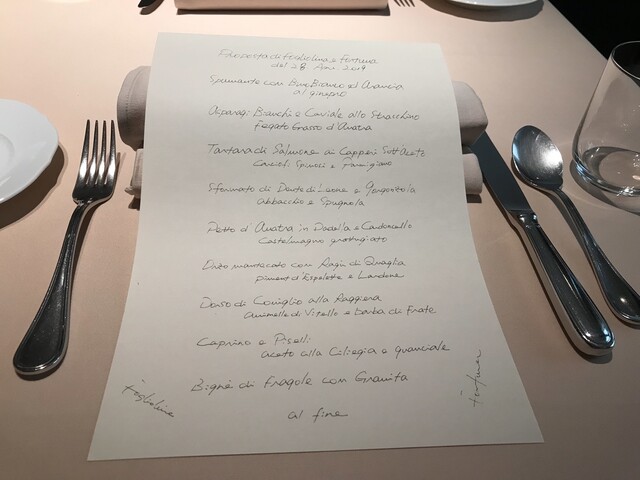 Proposta di Fogliolina e Fortuna
del 28. Apr. 2019
Spumante con Vino Bianco ed Arancia
al ginepro
Asparagi Bianchi e Caviale allo Stracchino
Fegato Grasso d'Anatra
Tartara di Salmone ai Capperi Sott'Aceto
Carciofi Spinosi e Parmigiano
Sformato di Dente di Leone e Gorgonzola
Abbacchio e Spugnola
Petto d'Anatra in Padella e Cardoncello
Castelmagno grattugiato
mantecato con Ragù di Quaglia
piment d'Espelette e
Dorso di Coniglio alla
Animelle di Vitello e barba di Frate
Caprino e Piselli
aceto alla Ciliegia e guanciale
Bignè di Fragole con Granita
Fogliolina
Fortuna
al fine